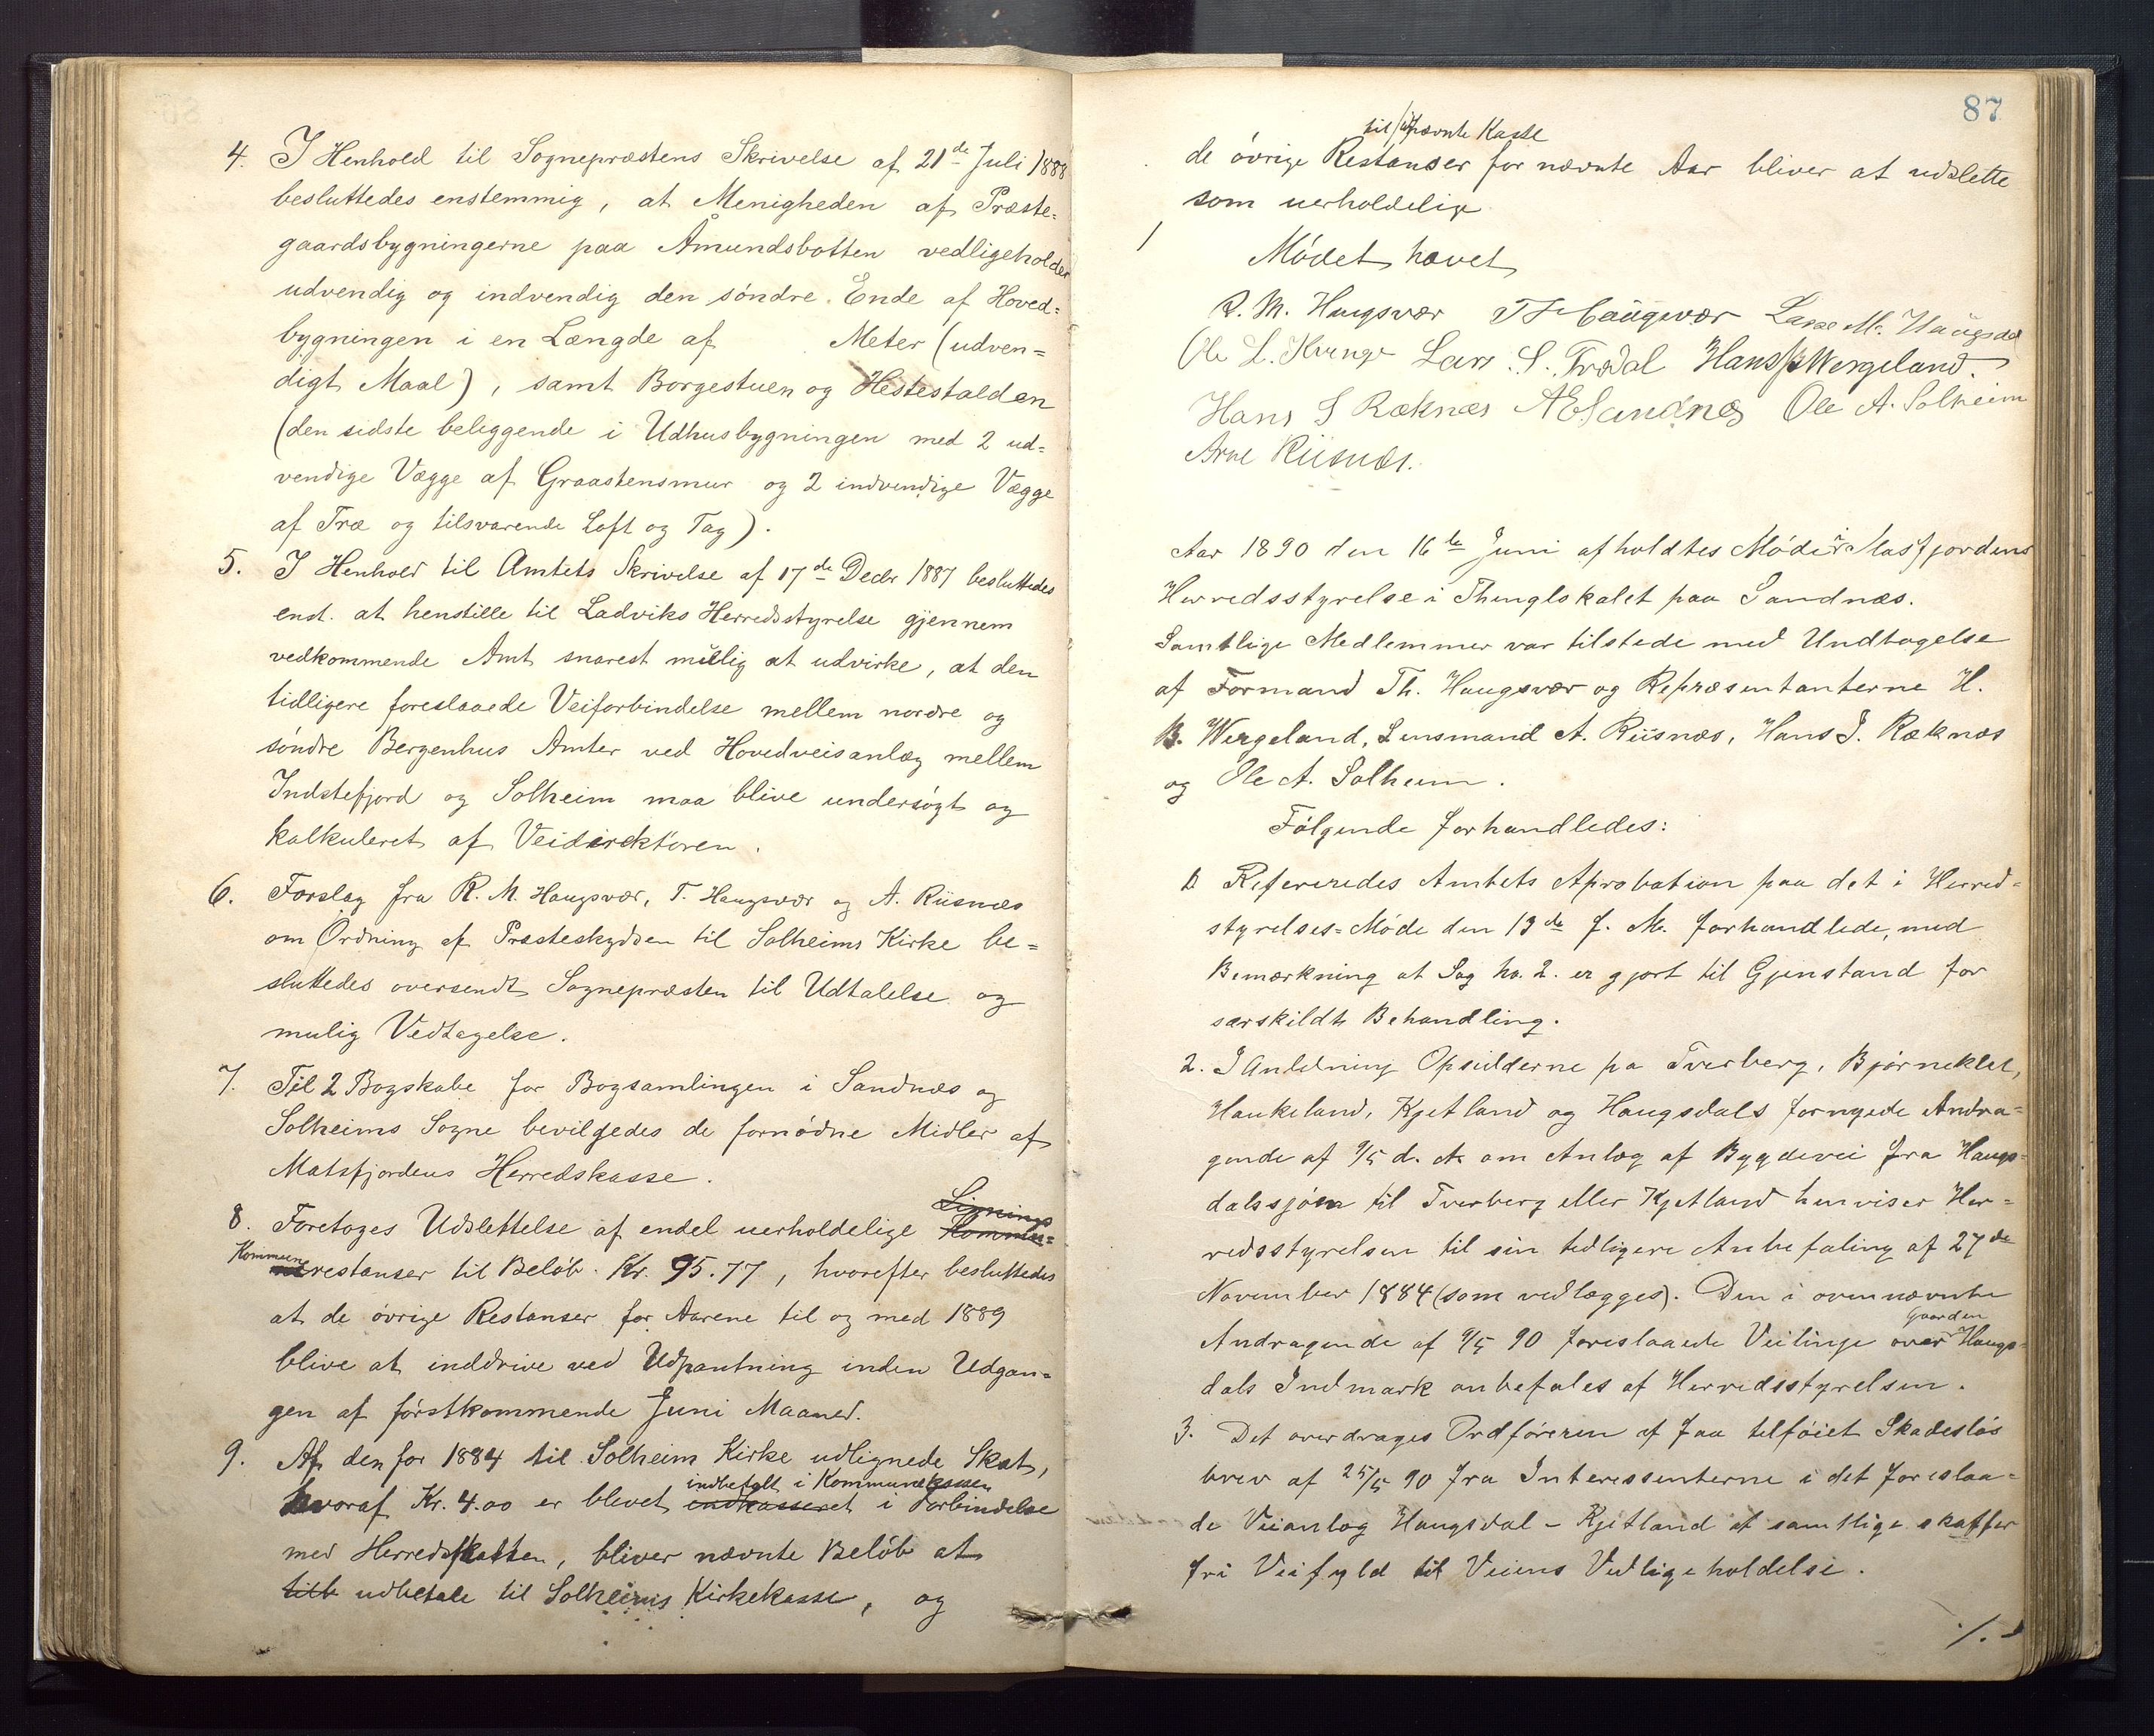 4. I Henhold til Sognepræstens Skrivelse af 21de Juli 1888
besluttedes enstemmig, at Menigheden af Præste=
gaardsbygningerne paa Åmundsbotten vedligeholder
udvendig og indvendig den søndre Ende af Hoved=
bygningen i en Længde af Meter (udven=
digt Maal), samt Borgestuen og Hestestalden
(den sidste beliggende i Udhusbygningen med 2 ud=
vendige Vægge af Graastensmur og 2 indvendige Vægge
af Træ og tilsvarende Loft og Tag).
5. I Henhold til Amtets Skrivelse af 17de Decbr 1887 besluttedes
enst. at henstille til Ladviks Herredsstyrelse gjennem
vedkommende Amt snarest mulig at udvirke, at den
tidligere foreslaaede Veiforbindelse mellem nordre og
søndre Bergenhus Amter ved Hovedveisanlæg mellem
Indstefjord og Solheim maa blive undersøgt og
kalkuleret af Veidirektøren.
6. Forslag fra R. M. Haugsvær, T. Haugsvær og A. Riisnæs
om Ordning af Præsteskydsen til Solheims Kirke be=
sluttedes oversendt Sognepræsten til Udtalelse og
mulig Vedtagelse.
7. Til 2 Bogskabe for Bogsamlingen i Sandnæs og
Solheims Sogne bevilgedes de fornødne Midler af
Matsfjordens Herredskasse.
Lignings
8. Foretoges Udslettelse af endel uerholdelige Kommu=
Kommune
nerestanser til Beløb Kr. 95.77, hvorefter besluttedes
at de øvrige Restanser for Aarene til og med 1889
blive at inddrive ved Udpantning inden Udgan=
gen af førstkommende Juni Maaned.
9. Af den for 1884 til Solheim Kirke udlignede Skat,
indbetalt i Kommunekassen
hvoraf Kr. 4.00 er blevet indkasseret i Forbindelse
med Herredsskatten, bliver nævnte Beløb at
tilb udbetale til Solheims Kirkekasse, og
87
til nævnte Kasse
de øvrige Restanser for nævnte Aar bliver at udslette
som uerholdelige
Mødet hævet
R. M. Haugsvær Th Haugsvær Lasse M. Haugsdal
Ole L. Kvinge Lars S. Trædal Hans B Wergeland.
Hans I Ræknæs A E Sandnæs Ole A. Solheim
Arne Riisnæs.
Aar 1890 den 16de Juni afholdtes Møde i Masfjordens
Herredsstyrelse i Thinglokalet paa Sandnæs.
Samtlige Medlemmer var tilstede med Undtagelse
af Formand Th. Haugsvær og Repræsentanterne H.
B. Wergeland, Lensmand A. Riisnæs, Hans I. Ræknæs
og Ole A. Solheim.
Følgende forhandledes:
1. Refereredes Amtets Aprobation paa det i Herred=
styrelses=Møde den 13de f. M. forhandlede, med
Bemærkning at Sag No. 2. er gjort til Gjenstand for
særskildt Behandling.
2. I Anledning Opsidderne pa Tverberg, Bjørneklet,
Haukeland, Kjetland og Haugsdals fornyede Andra=
gende af 9/5 d. A. om Anlæg af Bygdevei fra Haugs=
dalssjøen til Tverberg eller Kjetland henviser Her=
redsstyrelsen til sin tidligere Anbefaling af 27de
November 1884 (som vedlægges). Den i ovennævnte
Gaarden
Andragende af 9/5 90 foreslaaede Veilinje over Haugs=
dals Indmark anbefales af Herredsstyrelsen.
3. Det overdrages Ordføreren at faa tilføiet Skadesløs
brev af 25/5 90 fra Interessenterne i det foreslaa=
de Veianlæg Haugsdal - Kjetland at samtlige skaffer
fri Veifyld til Veiens Vedligeholdelse.
./.